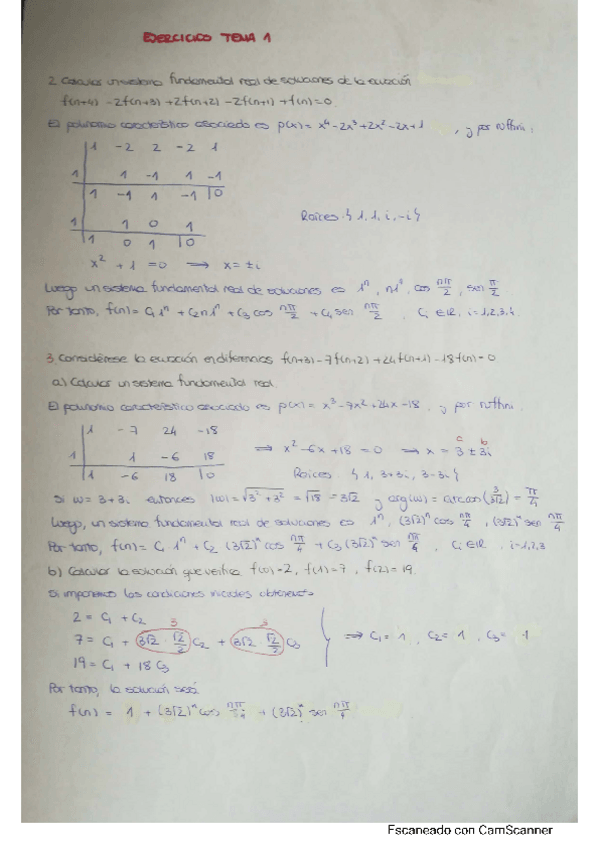 EJERCICIO TEMA 1
2. Calcular un sistema fundamental real de soluciones de la ecuación
f(n+4) - 2f(n+3) + 2f(n+2) - 2f(n+1) + f(n) = 0
El polinomio característico asociado es p(x) = x⁴ - 2x³ + 2x² - 2x + 1, y por ruffini:
1 -2 2 -2 1
1 1 -1 1 -1
1 -1 1 -1 0
1 1 0 1
Raíces { 1, 1, i, -i }
1 0 1 0
x² + 1 = 0 ⟹ x = ± i
Luego un sistema fundamental real de soluciones es 1ⁿ, n1ⁿ, cos nπ/2, sen π/2
Por tanto, f(n) = C₁1ⁿ + C₂n1ⁿ + C₃ cos nπ/2 + C₄ sen nπ/2, Cᵢ ∈ ℝ, i=1,2,3,4.
3. Considérese la ecuación en diferencias f(n+3) - 7f(n+2) + 24f(n+1) - 18f(n) = 0
a) Calcular un sistema fundamental real.
El polinomio característico asociado es p(x) = x³ - 7x² + 24x - 18, y por ruffini.
1 -7 24 -18
⟹ x² - 6x + 18 = 0 ⟹ x = 3 ± 3i
a b
1 1 -6 18
1 -6 18 0
Raíces { 1, 3+3i, 3-3i }
Si w = 3+3i entonces |w| = √3²+3² = √18 = 3√2 y arg(w) = arccos(3/3√2) = π/4
Luego, un sistema fundamental real de soluciones es 1ⁿ, (3√2)ⁿ cos nπ/4, (3√2)ⁿ sen nπ/4
Por tanto, f(n) = C₁ 1ⁿ + C₂ (3√2)ⁿ cos nπ/4 + C₃ (3√2)ⁿ sen nπ/4, Cᵢ ∈ ℝ, i=1,2,3
b) Calcular la solución que verifica f(0)=2, f(1)=7, f(2)=19.
Si imponemos las condiciones iniciales obtenemos
2 = C₁ + C₂
3 3
7 = C₁ + 3√2 · √2/2 C₂ + 3√2 √2/2 C₃ ⟹ C₁ = 1, C₂ = 1, C₃ = 1
19 = C₁ + 18 C₃
Por tanto, la solución será
f(n) = 1 + (3√2)ⁿ cos nπ/4 + (3√2)ⁿ sen nπ/4
Escaneado con CamScanner